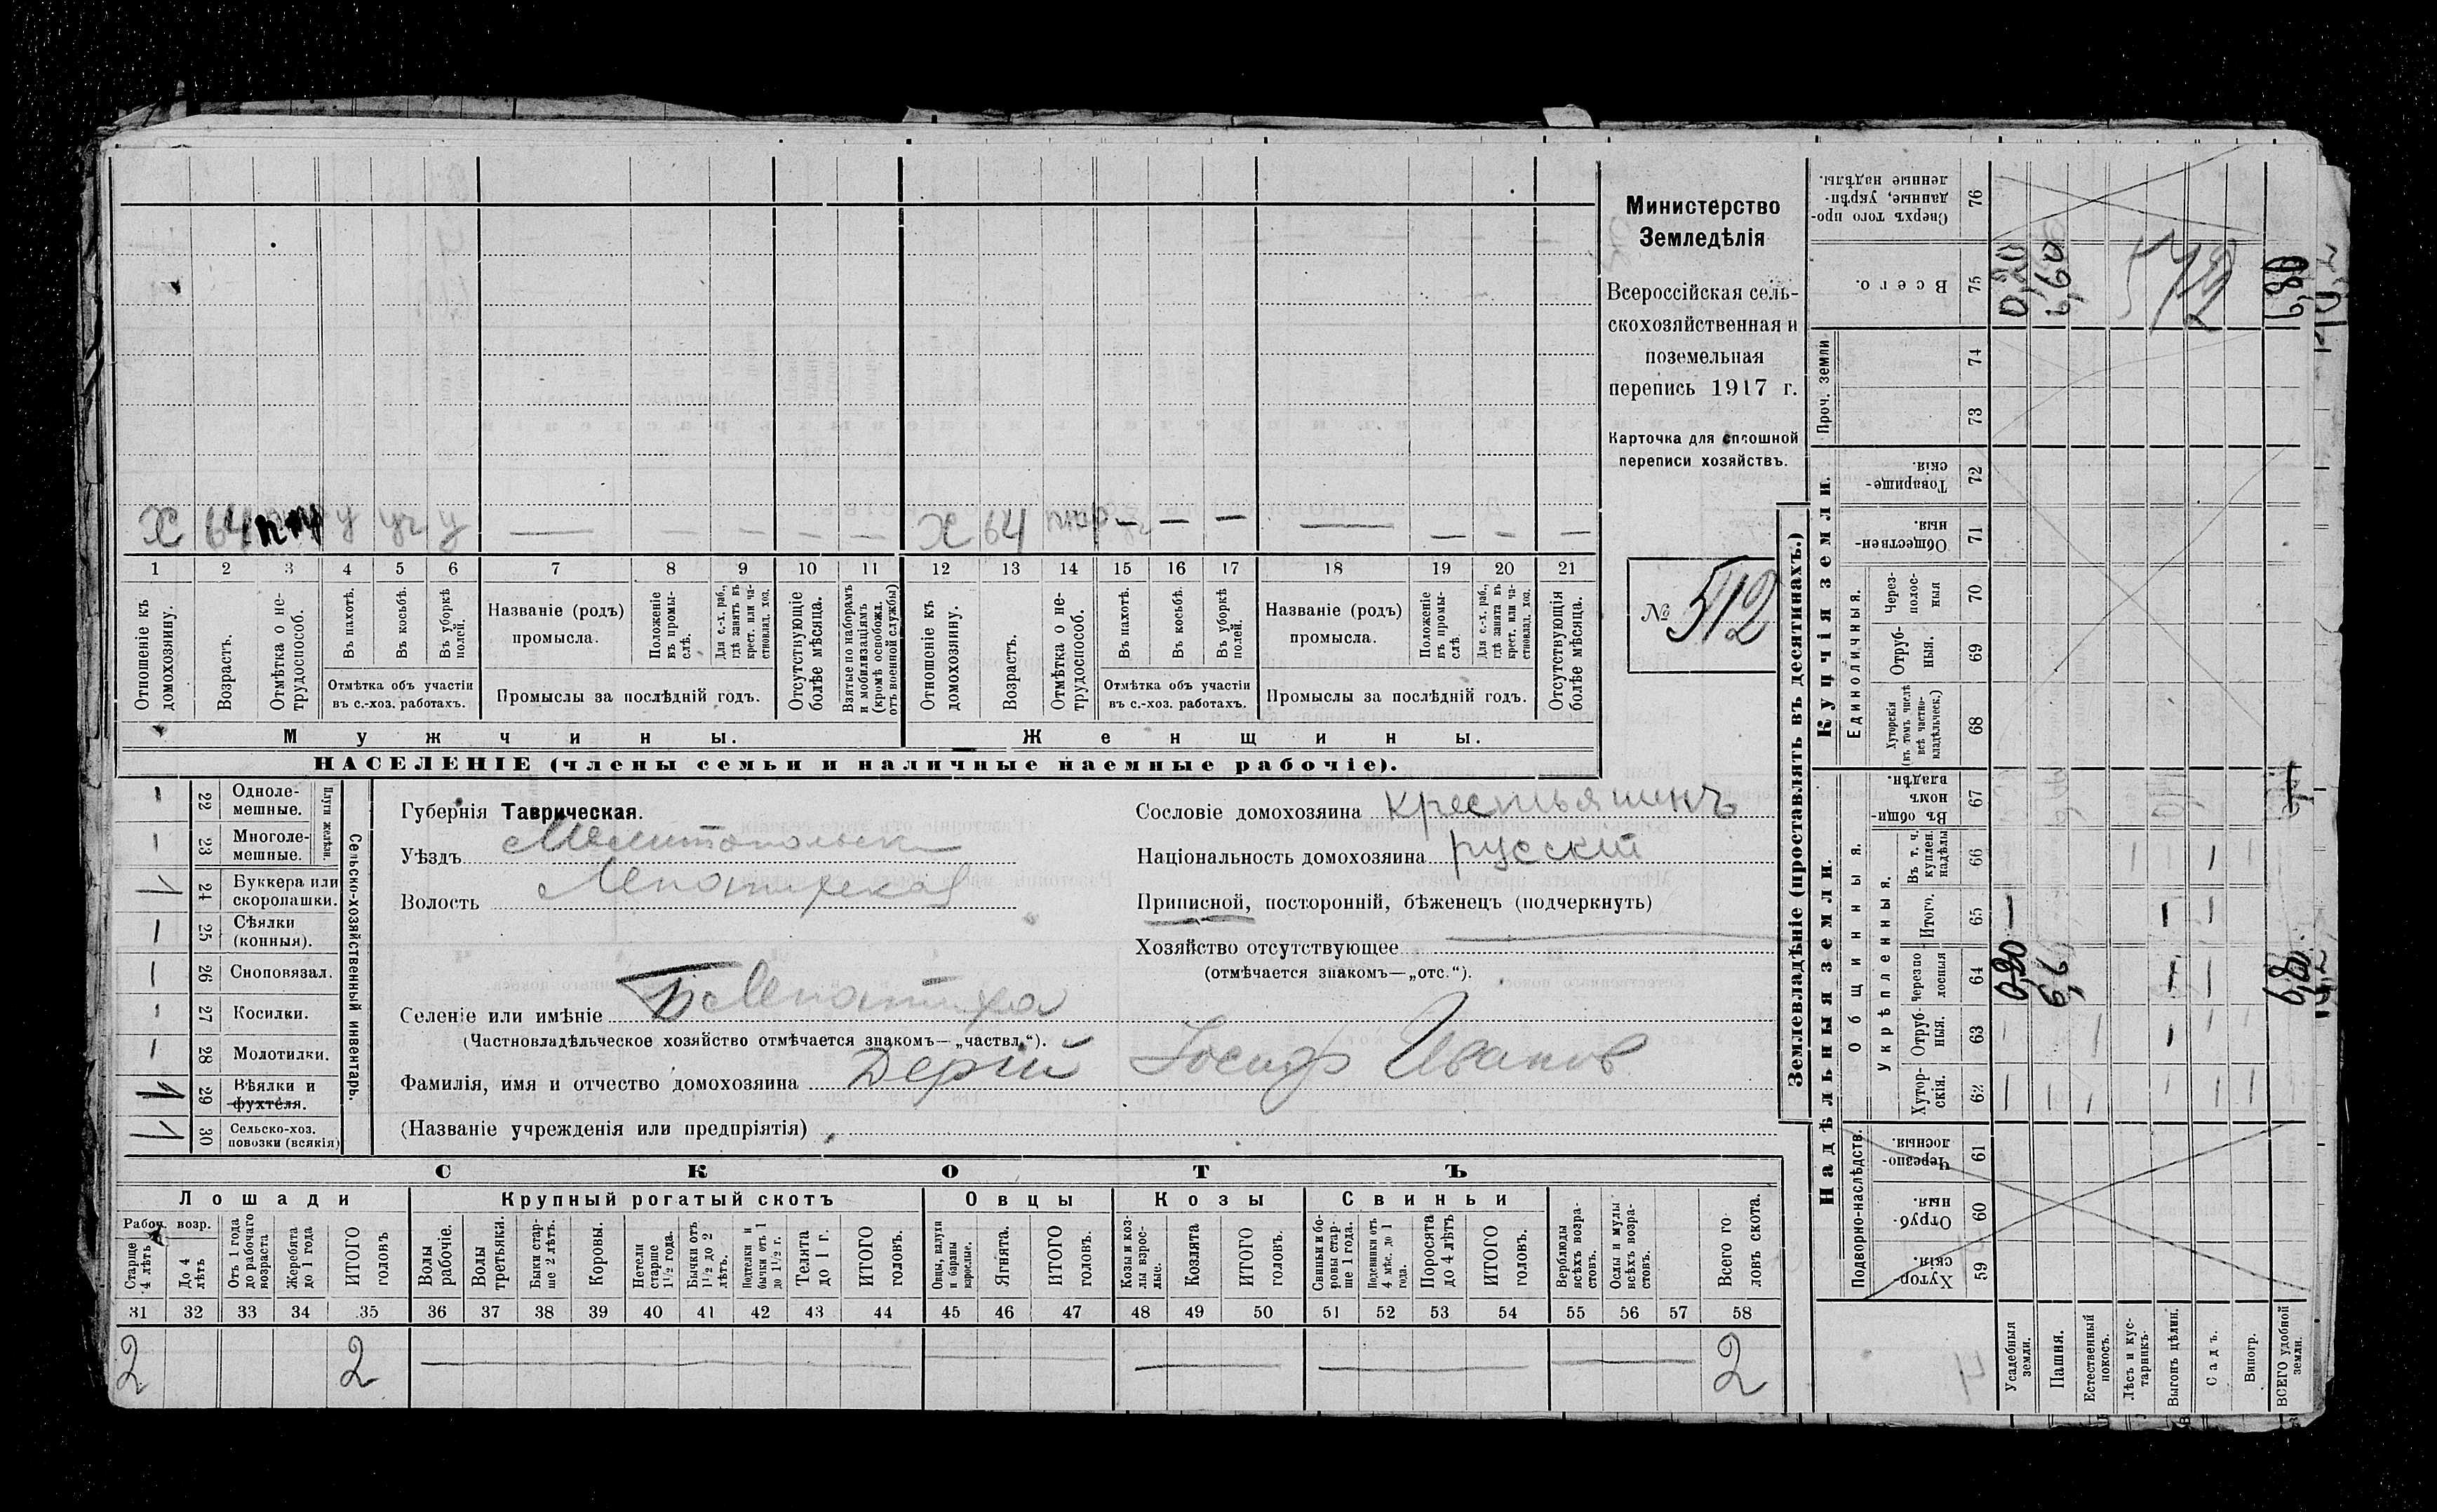 Министерство
Земледѣлія
Всероссійская сель-
скохозяйственная и
поземельная
перепись 1917 г.
Карточка для сплошной
переписи хозяйствъ.
№ 512
х 64 у уч у — — — — —
х 64 — — — — — — —
1 2 3 4 5 6 7 8 9 10 11 12 13 14 15 16 17 18 19 20 21
Отношеніе къ домохозяину.
Возрастъ.
Отмѣтка о не-трудоспособ.
Въ пахотѣ.
Въ косьбѣ.
Въ уборкѣ полей.
Отмѣтка объ участіи
въ с.-хоз. работахъ.
Названіе (родъ)
промысла.
Положеніе въ промы-слѣ.
Для с.-х. раб., гдѣ занятъ въ крест. или ча-стновлад. хоз.
Промыслы за послѣдній годъ.
Отсутствующіе болѣе мѣсяца.
Взятые по наборамъ и мобилизаціямъ (кромѣ освобожд. отъ военной службы)
Отношеніе къ домохозяину.
Возрастъ.
Отмѣтка о не-трудоспособ.
Въ пахотѣ.
Въ косьбѣ.
Въ уборкѣ полей.
Отмѣтка объ участіи
въ с.-хоз. работахъ.
Названіе (родъ)
промысла.
Положеніе въ промы-слѣ
Для с.-х. раб., гдѣ занята въ крест. или ча-стновлад. хоз.
Промыслы за послѣдній годъ.
Отсутствующія болѣе мѣсяца.
Мужчины.
Женщины.
НАСЕЛЕНІЕ (члены семьи и наличные наемные рабочіе).
Сельско-хозяйственный инвентарь.
Плуги желѣзн.
22 Одноле-мешные.
23 Многоле-мешные.
1 24 Буккера или скоропашки.
25 Сѣялки (конныя).
26 Сноповязал.
27 Косилки.
28 Молотилки.
1 29 Вѣялки и фухтеля.
1 30 Сельско-хоз. повозки (всякія)
Губернія Таврическая.
Уѣздъ Мелитопольск
Волость
Селеніе или имѣніе
(Частновладѣльческое хозяйство отмѣчается знакомъ—„частвл.“).
Фамилія, имя и отчество домохозяина Дерій Іосиф Иванов
(Названіе учрежденія или предпріятія)
Сословіе домохозяина крестьянинъ
Національность домохозяина русскій
Приписной, посторонній, бѣженецъ (подчеркнуть)
Хозяйство отсутствующее
(отмѣчается знакомъ—„отс.“).
СКОТЪ
Лошади
Крупный рогатый скотъ
Овцы
Козы
Свиньи
Рабоч. возр.
Старше 4 лѣтъ
До 4 лѣтъ
Отъ 1 года до рабочаго возраста
Жеребята до 1 года
ИТОГО головъ
Волы рабочіе.
Волы третьяки.
Быки стар-ше 2 лѣтъ.
Коровы.
Нетели старше 1½ года.
Бычки отъ 1½ до 2 лѣтъ.
Подтелки и бычки отъ 1 до 1½ г.
Телята до 1 г.
ИТОГО головъ.
Овцы, валухи и бараны взрослые.
Ягнята.
ИТОГО головъ.
Козы и коз-лы взрос-лые.
Козлята
ИТОГО головъ.
Свиньи и бо-ровы стар-ше 1 года.
Подсвинки отъ 4 мѣс. до 1 года.
Поросята до 4 лѣтъ
ИТОГО головъ.
Верблюды всѣхъ возра-стовъ.
Ослы и мулы всѣхъ возра-стовъ.
Всего го-ловъ скота.
31 32 33 34 35 36 37 38 39 40 41 42 43 44 45 46 47 48 49 50 51 52 53 54 55 56 57 58
2 2 2
Землевладѣніе (проставлять въ десятинахъ.)
Надѣльныя земли.
Купчія земли.
Проч. земли
Подворно-наслѣдств.
Общинныя.
Укрѣпленныя.
Единоличныя.
76 Сверхъ того про-данные, укрѣп-ленные надѣлы.
75 Всего.
74
73
72 Товарище-скія.
71 Обществен-ныя.
70 Через-полос-ныя
69 Отруб-ныя.
68 Хуторскія (въ томъ числѣ всѣ частно-владѣльческ.)
67 Въ общин-номъ владѣн.
66 Въ т. ч. куплен. надѣлы
65 Итого.
64 Черезпо-лосныя
63 Отруб-ныя.
62 Хутор-скія.
61 Черезпо-лосныя.
60 Отруб-ныя.
59 Хутор-скія.
Усадебныя земли.
Пашня.
Естественный покосъ.
Лѣсъ и кус-тарникъ.
Выгонъ цѣлин.
Садъ.
Виногр.
ВСЕГО удобной земли.
0,20 6,60 512 6,80
0,20 6,6 6,80